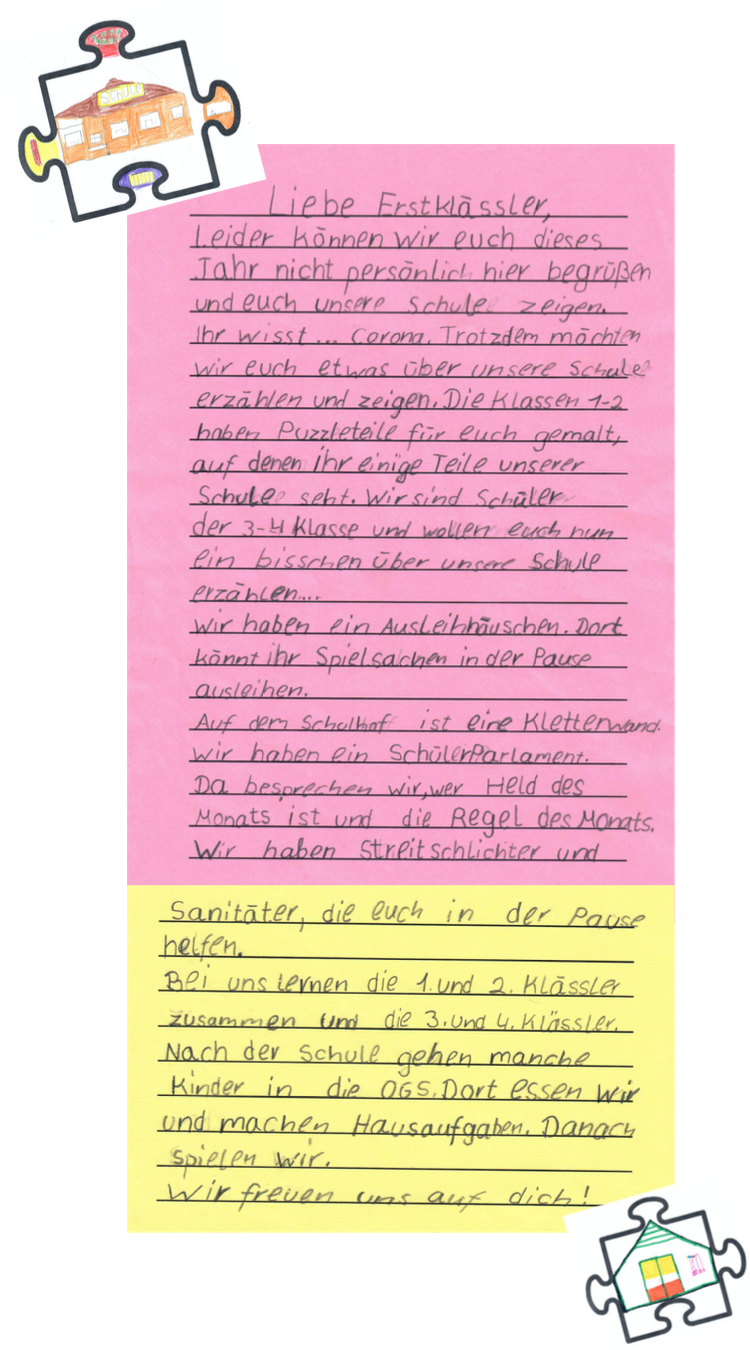 Schule
Liebe Erstklässler,
Leider können wir euch dieses
Jahr nicht persönlich hier begrüßen
und euch unsere Schule zeigen.
Ihr wisst... Corona. Trotzdem möchten
wir euch etwas über unsere Schule
erzählen und zeigen. Die Klassen 1-2
haben Puzzleteile für euch gemalt,
auf denen ihr einige Teile unserer
Schule seht. Wir sind Schüler
der 3-4 Klasse und wollen euch nun
ein bisschen über unsere Schule
erzählen...
Wir haben ein Ausleihhäuschen. Dort
könnt ihr Spielsachen in der Pause
ausleihen.
Auf dem Schulhof ist eine Kletterwand.
Wir haben ein SchülerParlament.
Da besprechen wir, wer Held des
Monats ist und die Regel des Monats.
Wir haben Streitschlichter und
Sanitäter, die euch in der Pause
helfen.
Bei uns lernen die 1. und 2. Klässler
zusammen und die 3. und 4. Klässler.
Nach der Schule gehen manche
Kinder in die OGS. Dort essen wir
und machen Hausaufgaben. Danach
spielen wir.
Wir freuen uns auf dich!